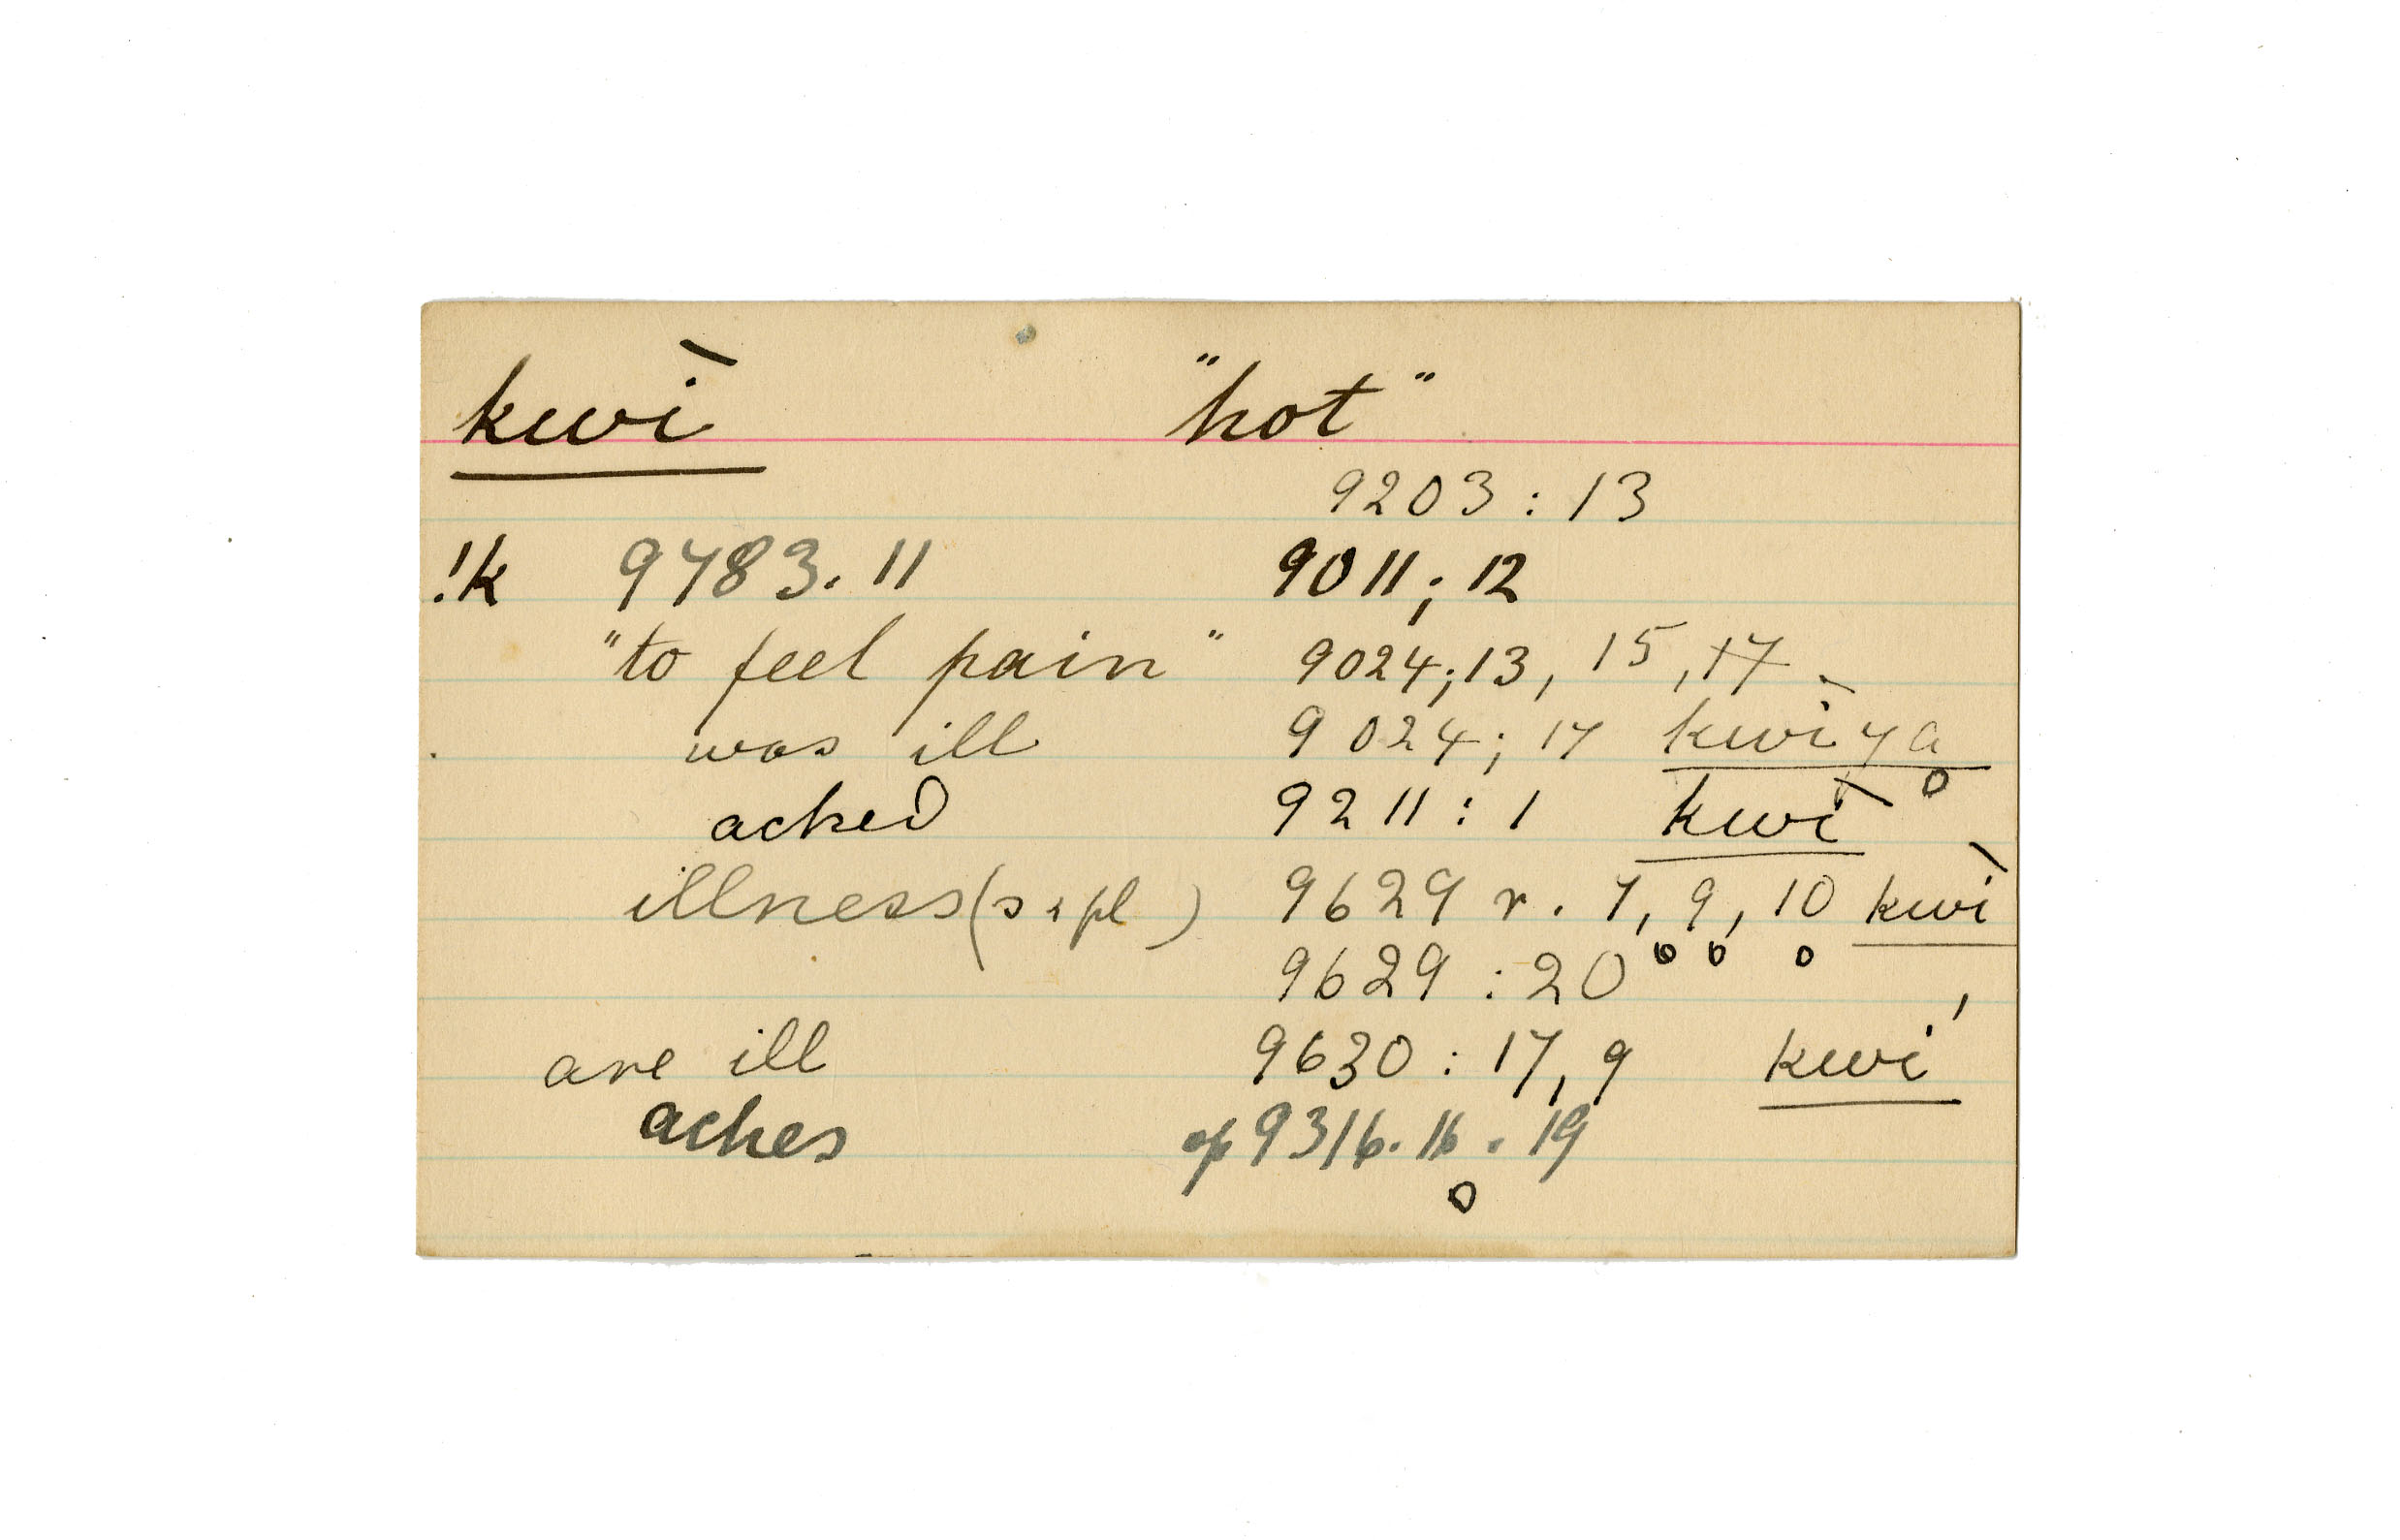 kwì "hot"
9203 : 13
!k 9783. 11 9011 ; 12
"to feel pain" 9024 ; 13, 15, 17
was ill 9024 ; 17 kwìya
ached 9211 : 1 kwì
illness (s & pl) 9629 r. 7, 9, 10 kwì
9629 : 20
are ill 9630 : 17, 9 kwí
aches 9316. 16. 19